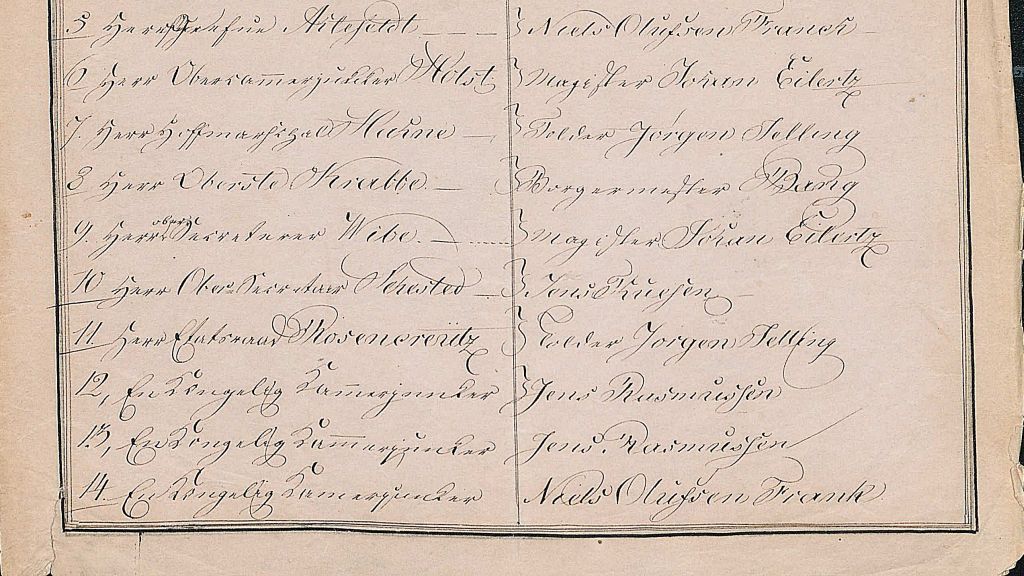 5 Herr Grefue Ahlefeldt — — — } Niels Olufsen Franck —
6 Herr Obercammerjunker Holst } Magister Johan Eilertz
7. Herr Hoffmarschal Haxne — } Tolder Jørgen Selling
8 Herr Oberste Krabbe. — } Borgermester Bang
9. Herr ober Secreterer Wibe. — ..... } Magister Johan Eilertz
10 Herr Ober Secretair Sehested — } Jens Truelsen —
11. Herr Etatsraad Rosencreütz } Tolder Jørgen Selling
12, En Kongelig Kammerjunker } Jens Rasmussen
13, En Kongelig Kammerjunker Jens Rasmussen
14. En Kongelig Kamerjunker Niels Olufsen Frank